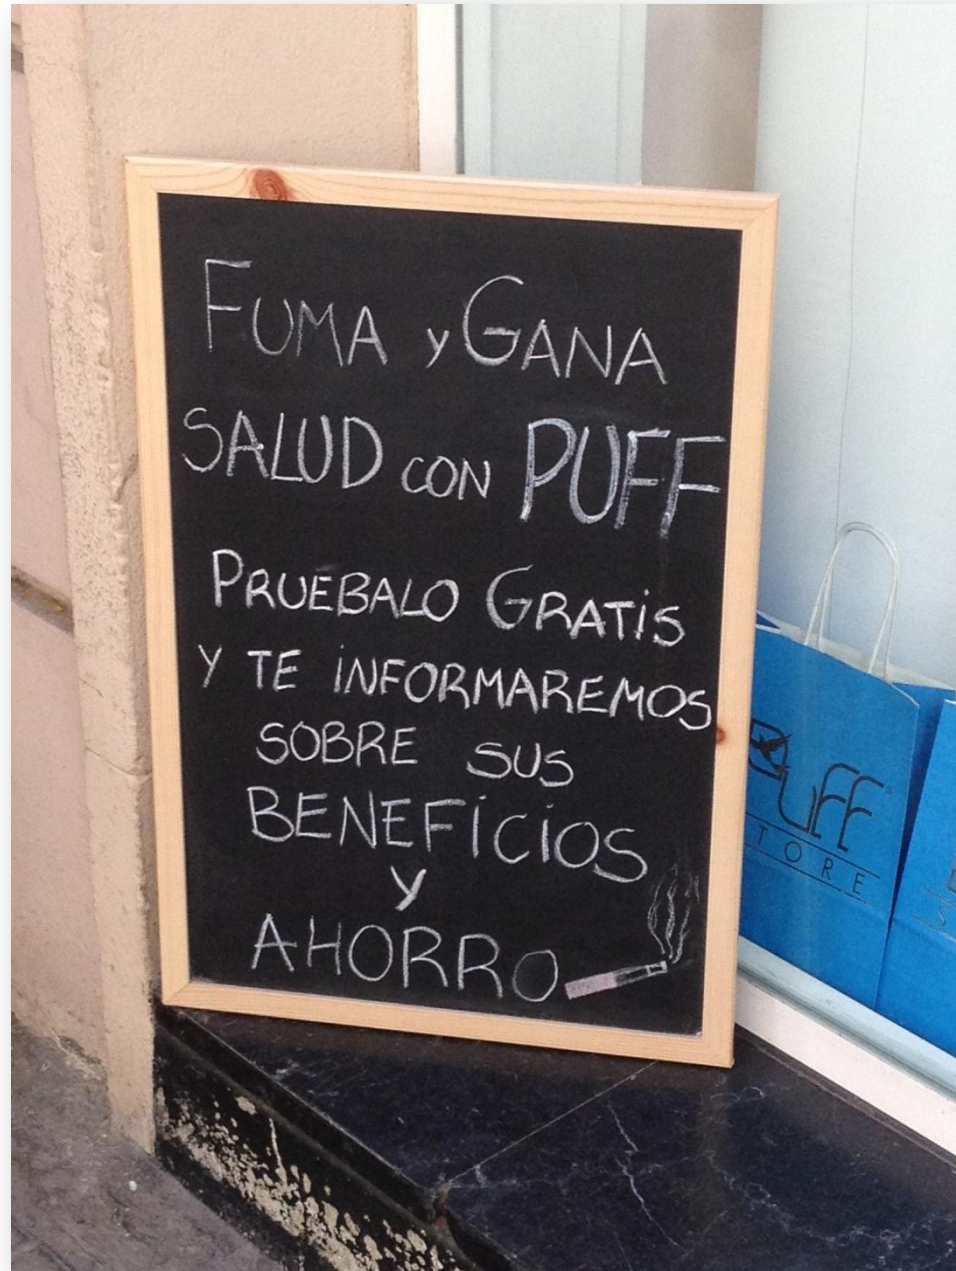 FUMA y GANA
SALUD CON PUFF
PRUEBALO GRATIS
Y TE INFORMAREMOS
SOBRE SUS
BENEFICIOS
Y
AHORRO
Puff
TORE